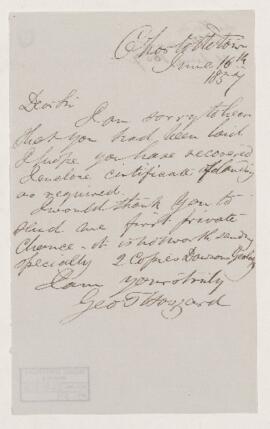 Charlottetown
June 16th
1887
Dear Sir
I am sorry to hear
that you had been laid
I hope you have recovered
I enclose certificate of planting
as required.
I would thank you to
send me first private
chance - it is not worth sending
specially 2 Copies Dawsons Geology
I am yours truly
Geo T Haszard